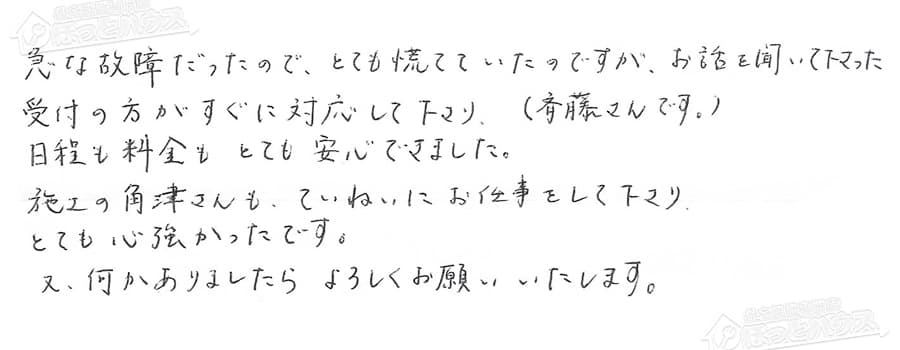 急な故障だったので、とても慌てていたのですが、お話を聞いて下さった
受付の方がすぐに対応して下さり、(斉藤さんです。)
日程も料金も とても 安心できました。
施工の角津さんも、ていねいにお仕事をして下さり、
とても心強かったです。
又、何かありましたら よろしくお願いいたします。
ほっとハウス
ほっとハウス